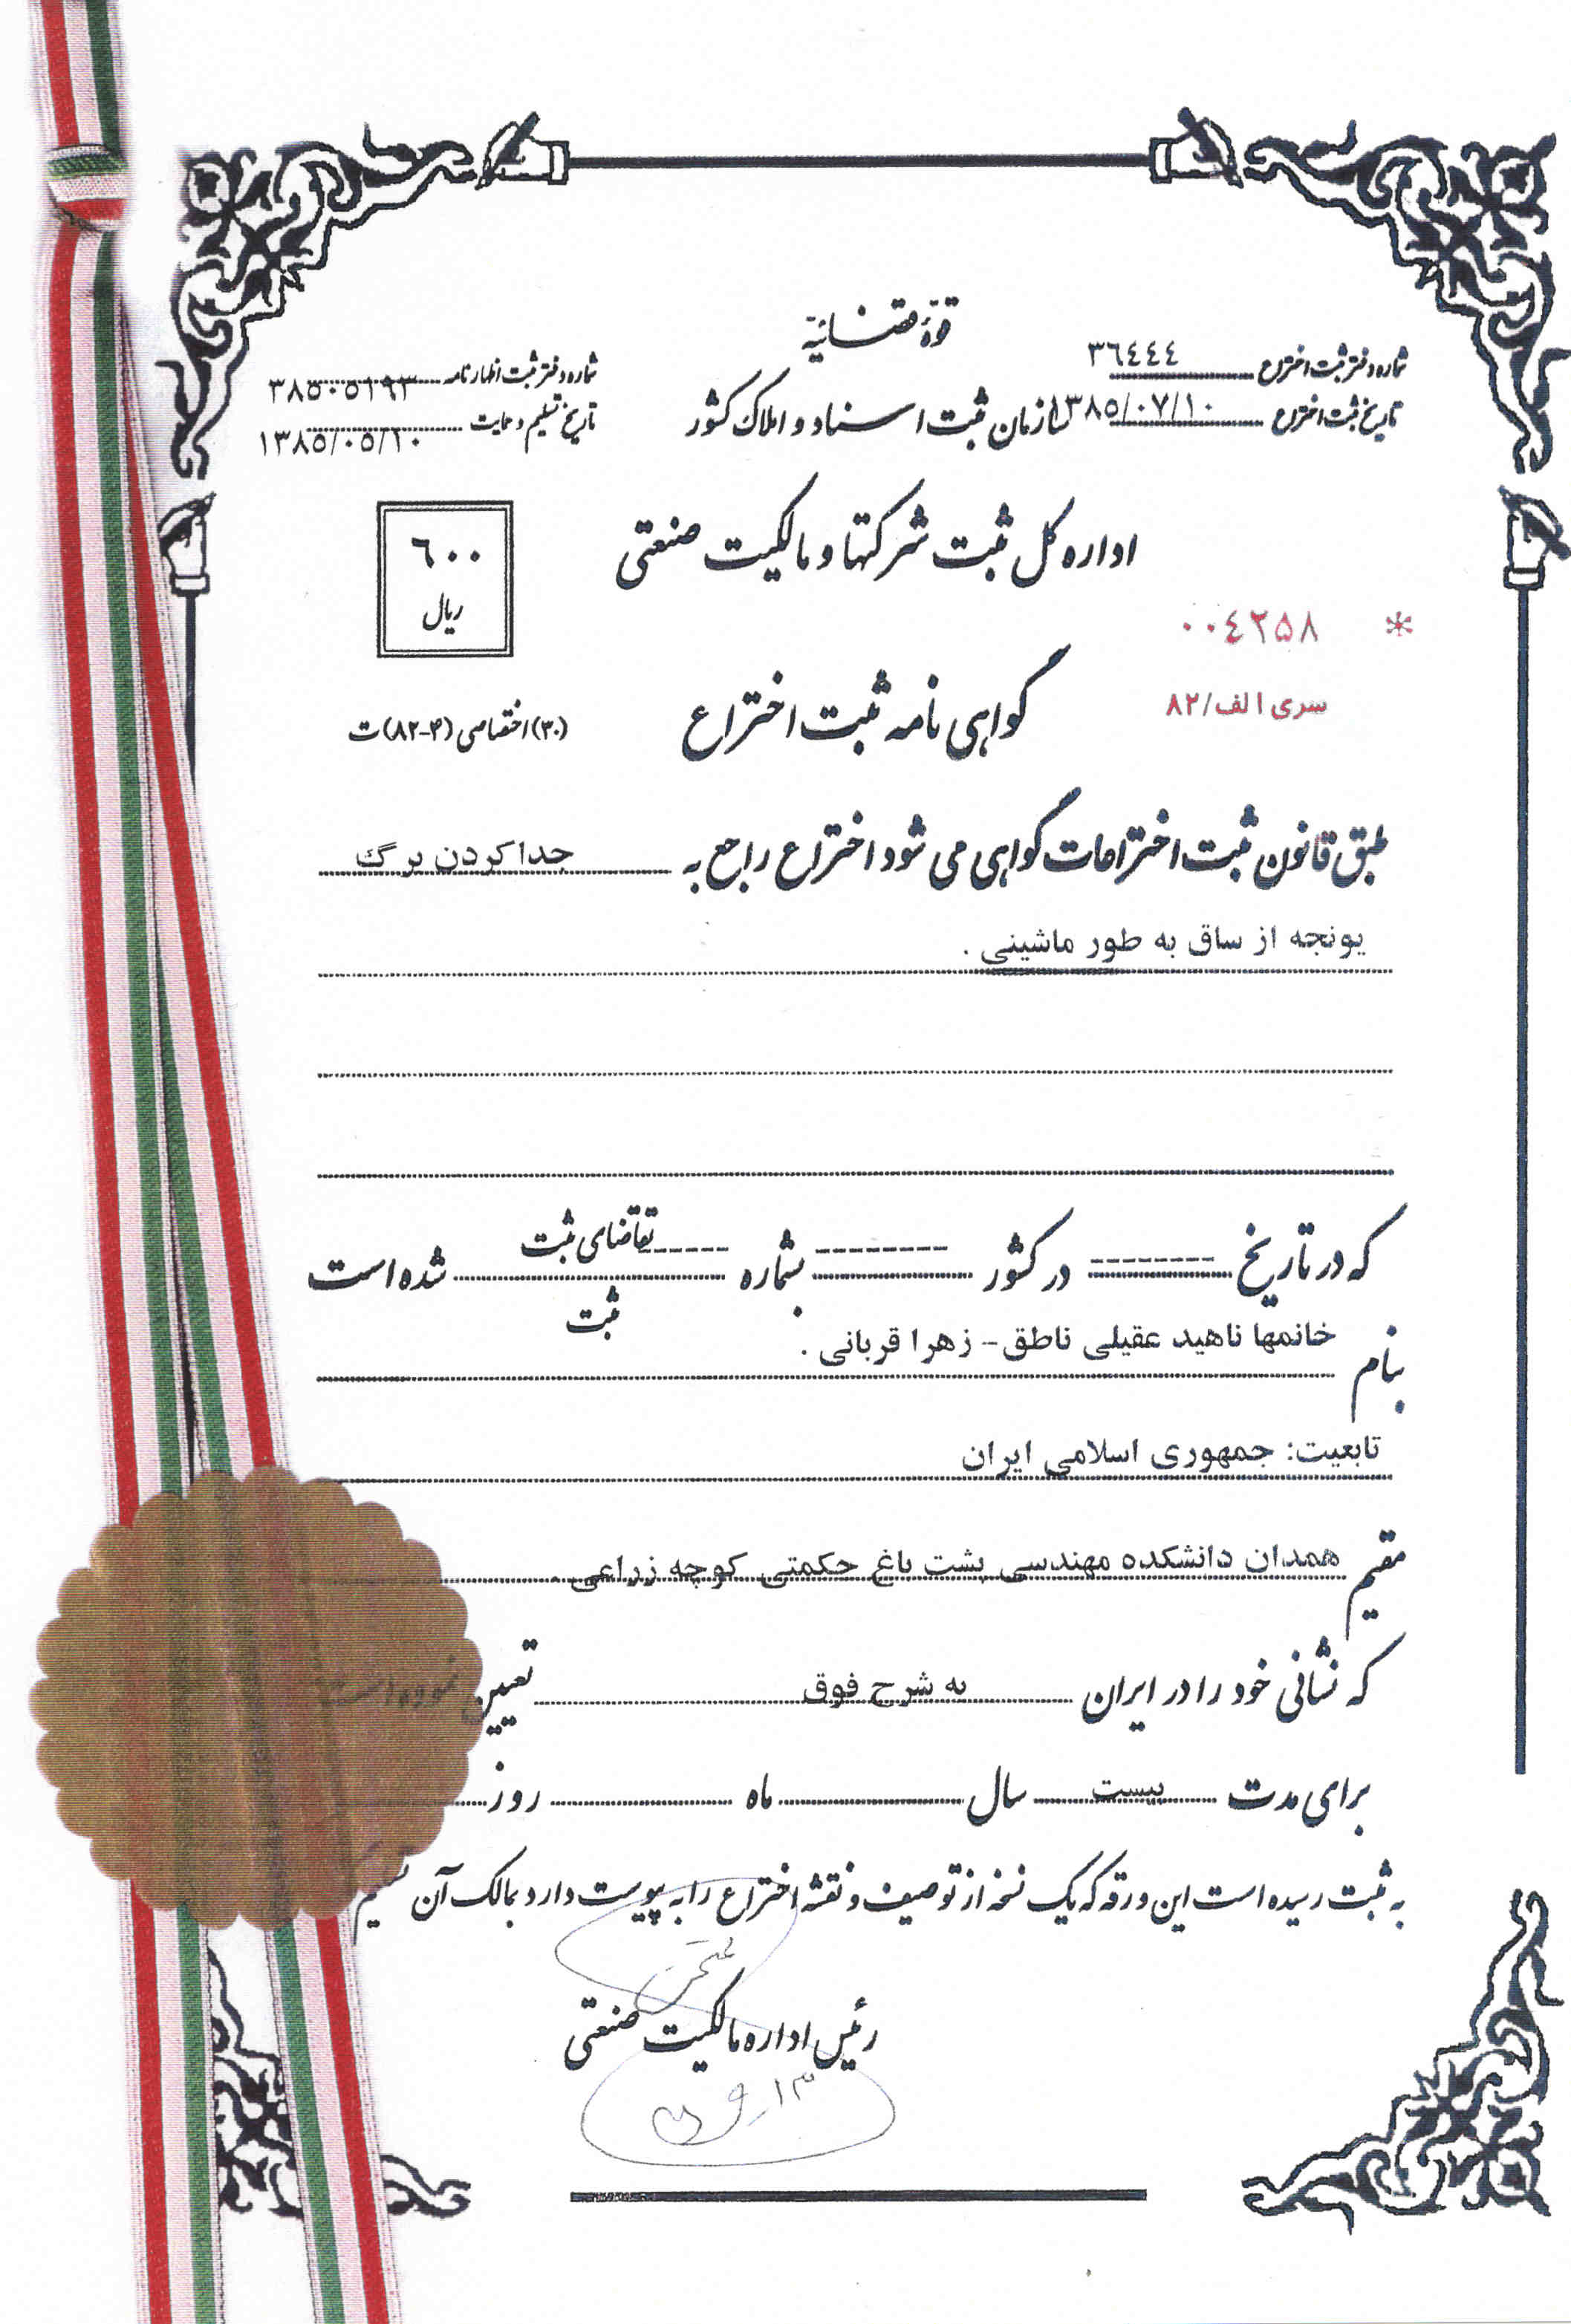 قوهٔ قضائیه
شماره دفتر ثبت اختراع ٣٦٤٤٤
شماره دفتر ثبت اظهارنامه ٣٨٥٠٥١٩٣
سازمان ثبت اسناد و املاک کشور
تاریخ ثبت اختراع ١٣٨٥/٠٧/١٠
تاریخ تسلیم و حمایت ١٣٨٥/٠٥/١٠
اداره کل ثبت شرکتها و مالکیت صنعتی
٦٠٠
ریال
* ٠٠٤٢٥٨
سری الف/٨٢
گواهی نامه ثبت اختراع
(٣٠) اختصاصی (٤-٨٢) ت
طبق قانون ثبت اختراعات گواهی می شود اختراع راجع به جداکردن برگ
یونجه از ساق به طور ماشینی .
که در تاریخ --------- در کشور --------- بشماره ------ تقاضای ثبت شده است
ثبت
بنام خانمها ناهید عقیلی ناطق- زهرا قربانی .
تابعیت: جمهوری اسلامی ایران
مقیم همدان دانشکده مهندسی پشت باغ حکمتی کوچه زراعی .
که نشانی خود را در ایران به شرح فوق تعیین نموده است
برای مدت بیست سال ماه روز
به ثبت رسیده است این ورقه که یک نسخه از توصیف و نقشه اختراع را به پیوست دارد بمالک آن تسلیم
رئیس اداره مالکیت صنعتی